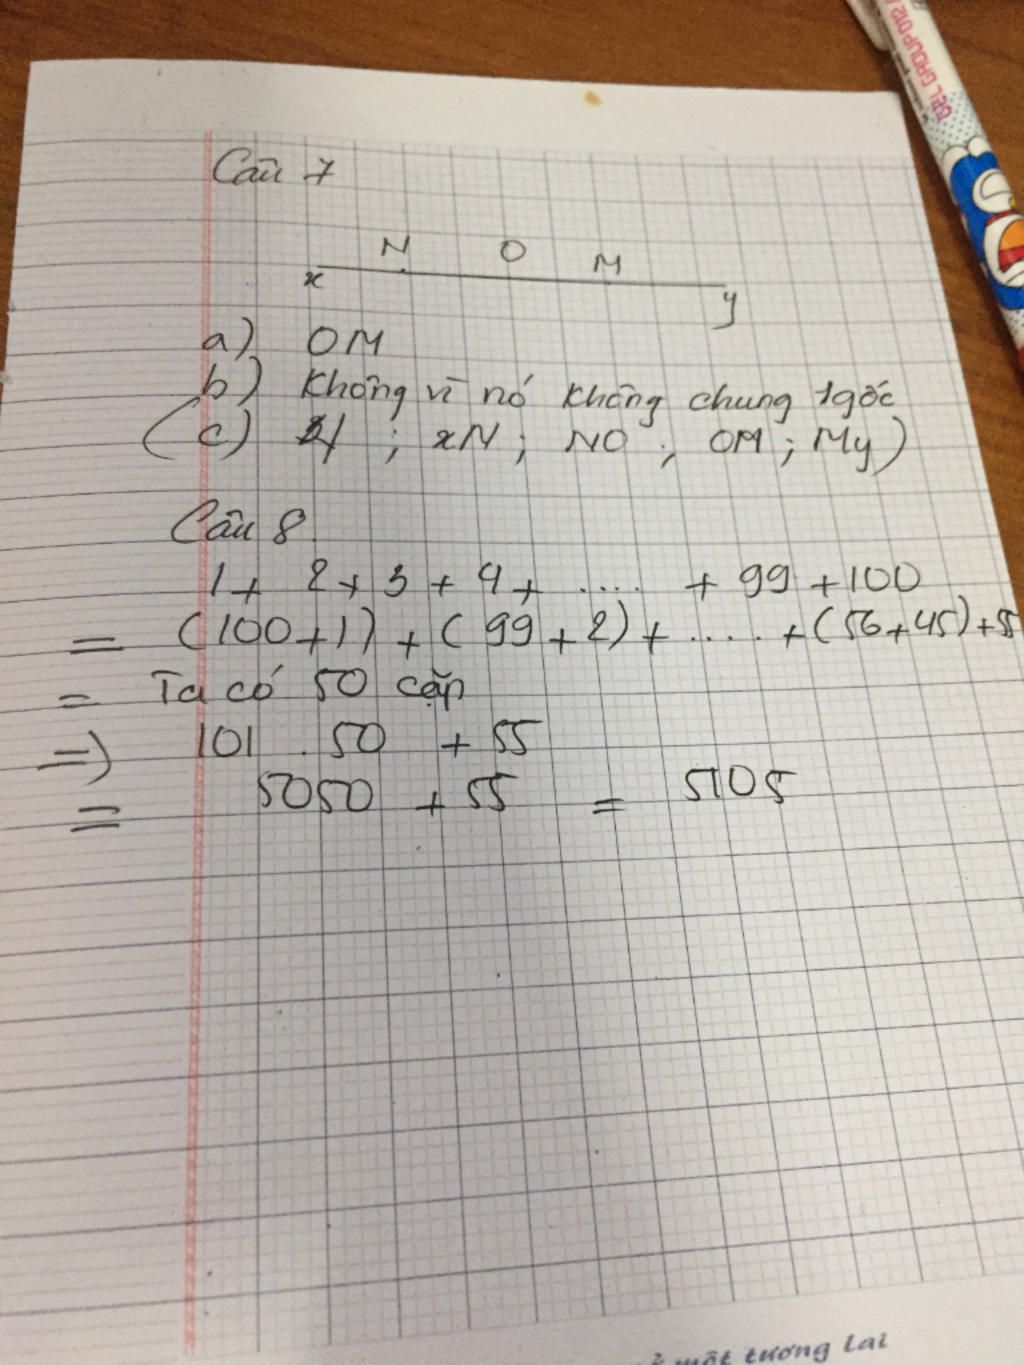 GEL GROUP 012
Câu 7
N O M
x y
a) OM
b) Không vì nó không chung 1 gốc
(c) ; xN ; NO ; OM ; My)
Câu 8
1 + 2 + 3 + 4 + .... + 99 + 100
= (100 + 1) + (99 + 2) + .... + (56 + 45) + 5
= Ta có 50 cặp
=> 101 . 50 + 55
= 5050 + 55 = 5105
một tương lai